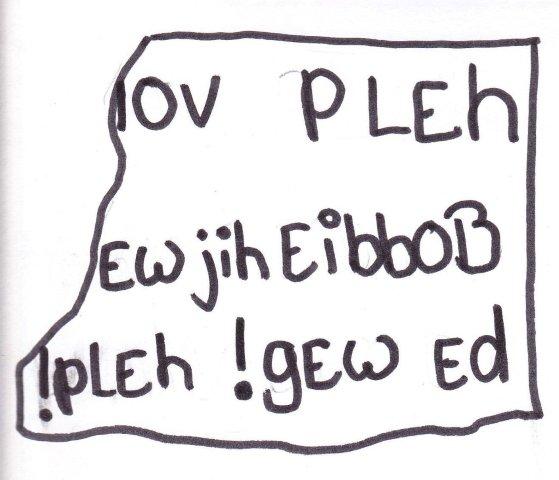 lOV PLEh
EwjihEibboB
!pLEh !gEw Ed